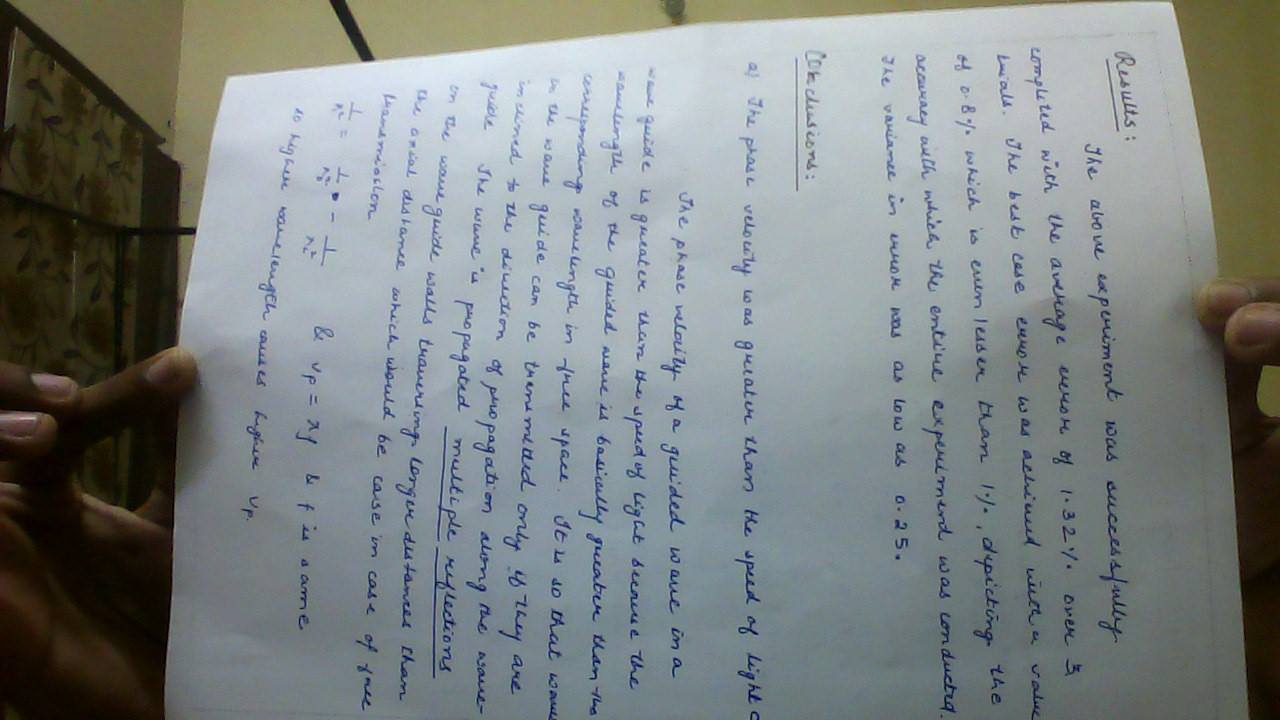 Results:
The above experiment was successfully
completed with the average error of 1.32% over 3
trials. The best case error was achieved with a value
of 0.8% which is even lesser than 1%, depicting the
accuracy with which the entire experiment was conducted.
The variance in error was as low as 0.25.
Conclusions:
a) The phase velocity was greater than the speed of light c
The phase velocity of a guided wave in a
wave guide is greater than the speed of light because the
wavelength of the guided wave is basically greater than the
corresponding wavelength in free space. It is so that waves
in the wave guide can be transmitted only if they are
inclined to the direction of propagation along the wave-
guide The wave is propagated multiple reflections
on the wave guide walls traversing longer distances than
the axial distance which would be case in case of free
transmission
1/λ² = 1/λ₀² - 1/λc² & vp = λf & f is same
so higher wavelength causes higher vp.